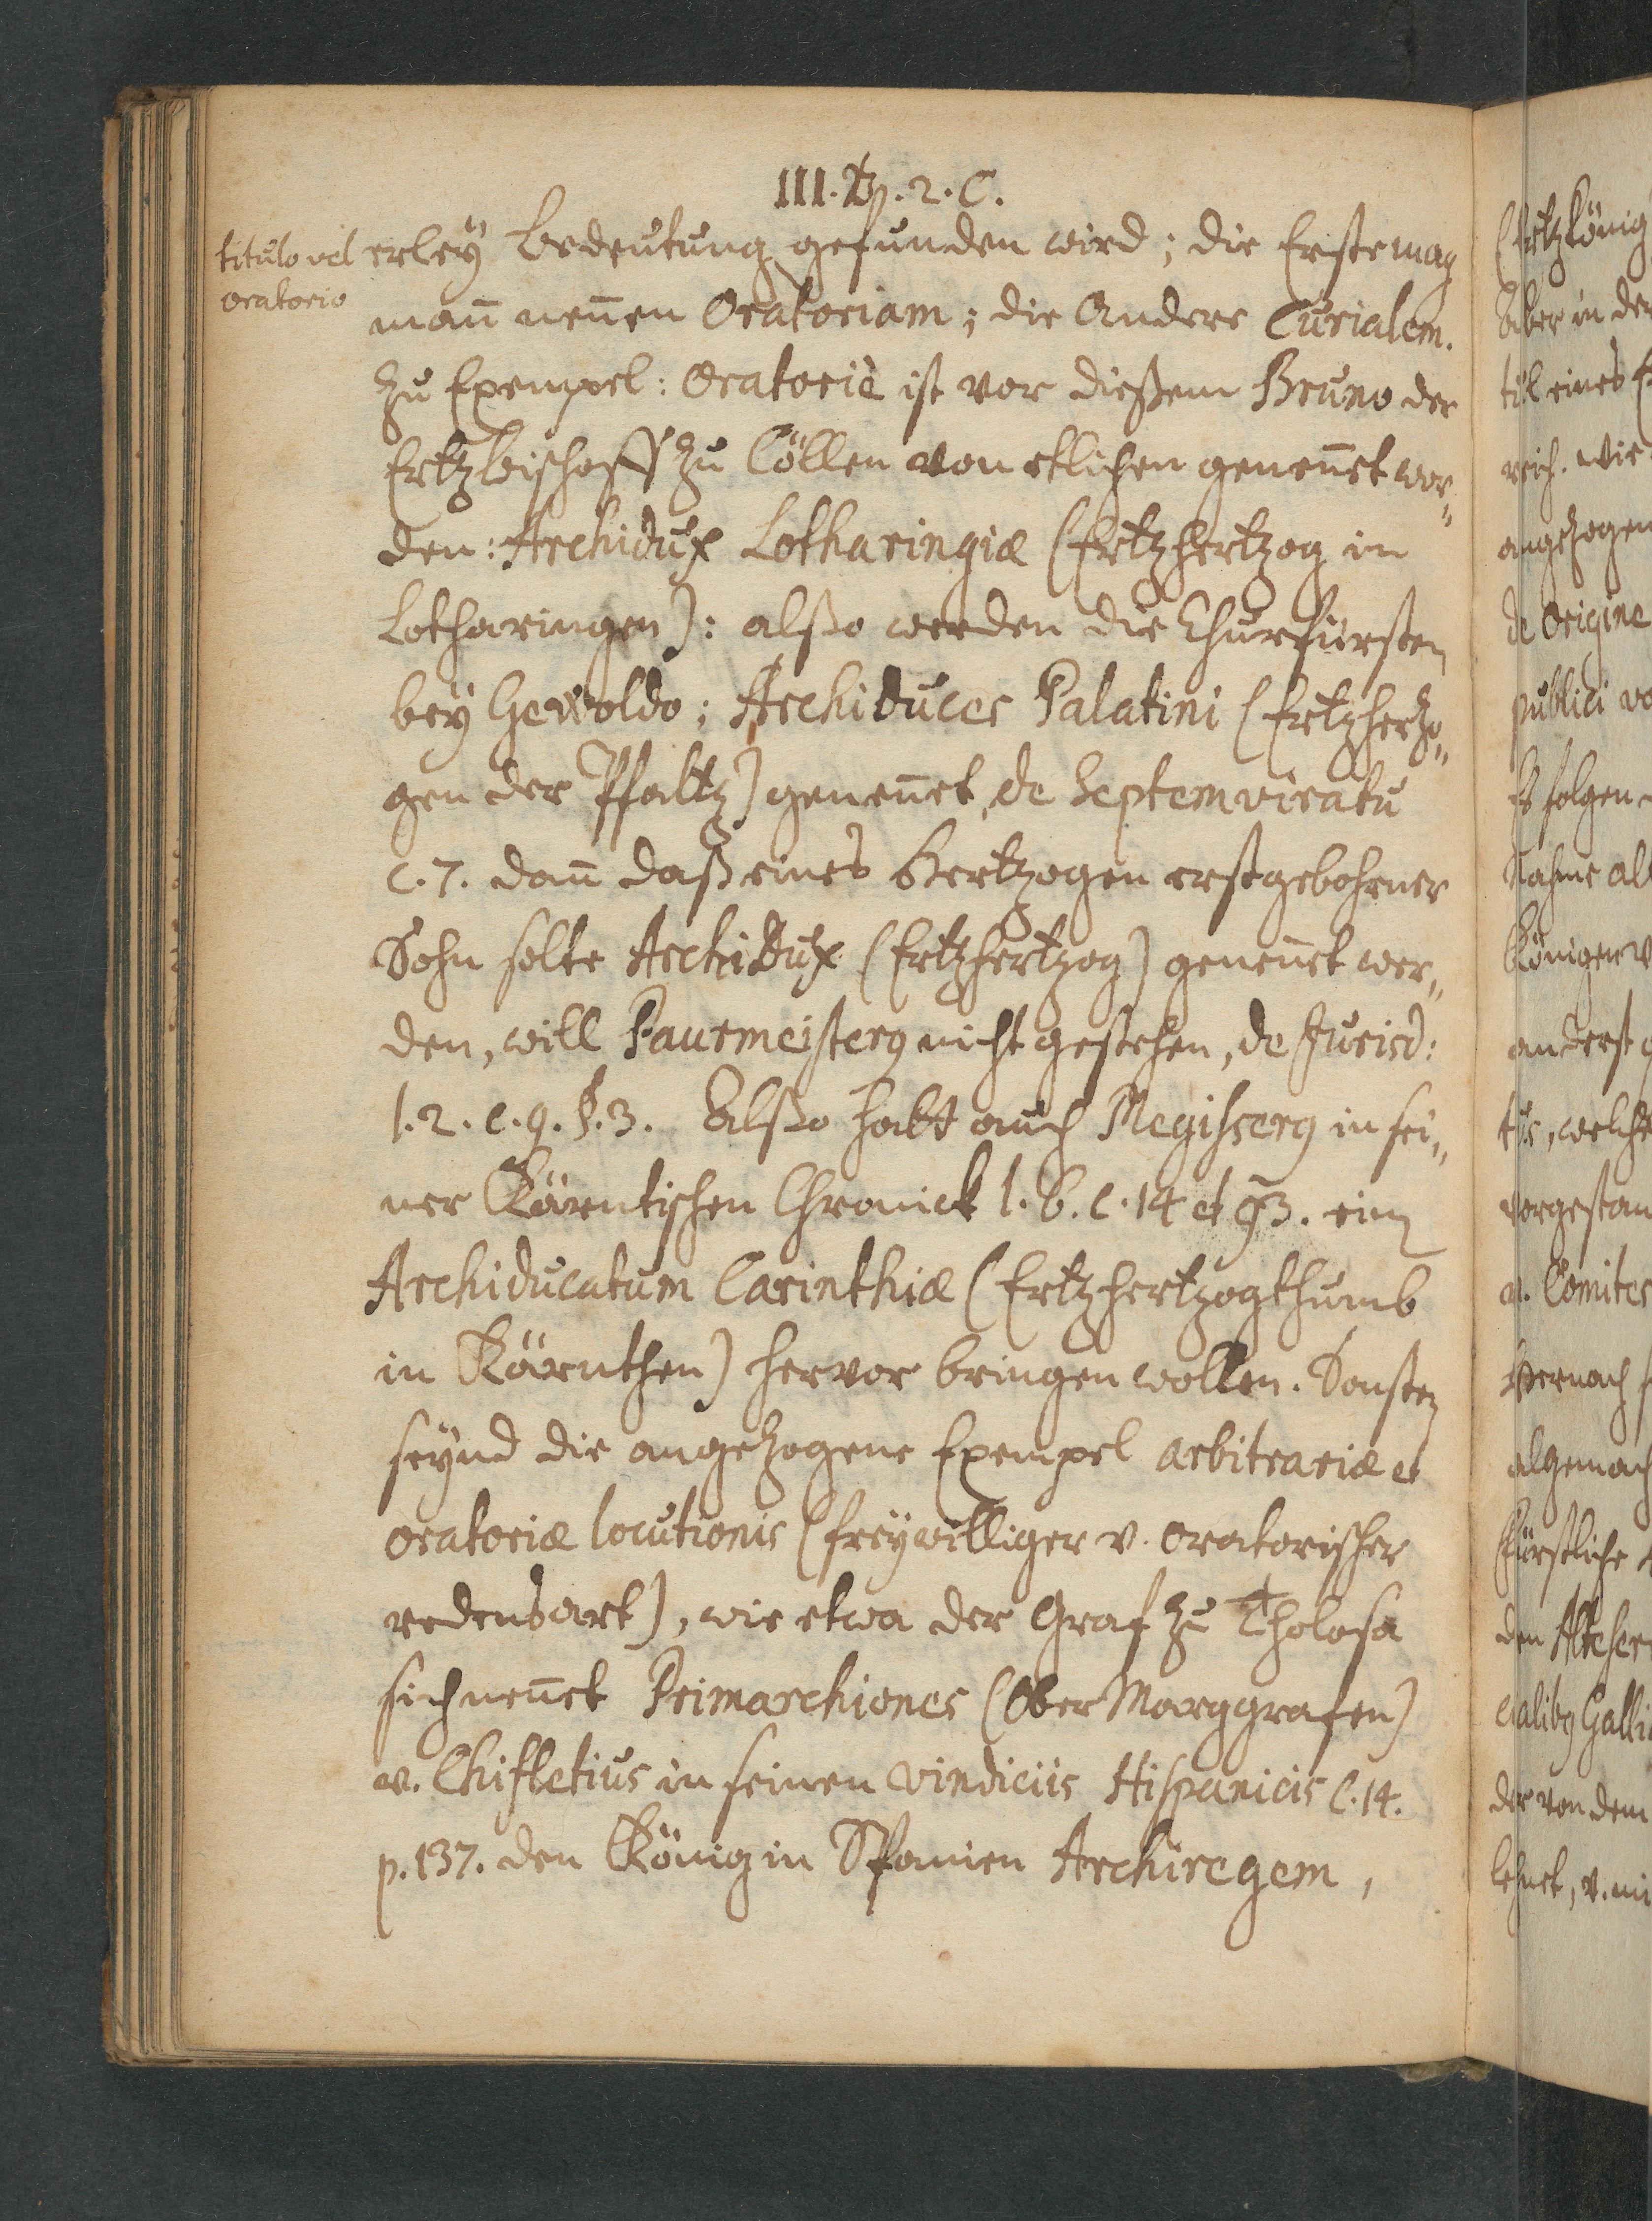 III. Th. 2. C.
titulo vel
oratorio
erleÿ bedeutung gefunden wird; die Erste mag
man̄ nen̄en Oratoriam; die Andere Curialem.
Zu Exempel: Oratoriè ist vor dießem Bruno der
Ertzbischoff zu Cöllen von etlichen genen̄et wor„
den: Archidux Lotharingiæ (Ertzhertzog in
Lotharingen): alßo werden die Churfürsten
beÿ Gewoldo; Archiduces Palatini (Ertzhertzo„
gen der Pfaltz) genen̄et, de Septemviratu
c. 7. dan̄ daß eines Hertzogen erstgebohrner
Sohn solte Archidux (Ertzhertzog) genen̄et wer„
den, will Paurmeisterg nicht gestehen, de Jurisd:
l. 2. c. 9. §. 3. Alßo hatt auch Megiserg in sei„
ner Kärntischen Chronick l. 6. c. 14 et 93. ein
Archiducatum Carinthiæ (Ertzhertzogthumb
in Kärnthen) hervor bringen wollen. Sonsten
seÿnd die angezogene Exempel arbitrariæ et
oratoriæ locutionis (freÿwilliger v. oratorischer
redensart), wie etwa der Graf zu Tholosa
sich nen̄et Primarchiones (Ober Marggrafen)
v. Chifletius in seinen vindiciis Hispanicis c. 14.
p. 137. den König in Spanien Archiregem,
Ertzkönig
Aber in der
tul eines
reich. wie
angezogen
de Origine
publici
Es folgen
Nahme
Königen
anderst
tus, welche
vorgestan
v. Comites
hernach
algemach
Fürstliche
den
Galli
der von dem
lehnet, v.